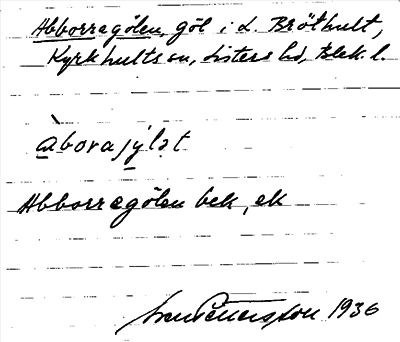 Abborregölen, göl i L. Bröthult,
Kyrkhults sn, Listers hd, Blek. l.
àborajylǝt
Abborregölen bek, ek
Pettersson 1936